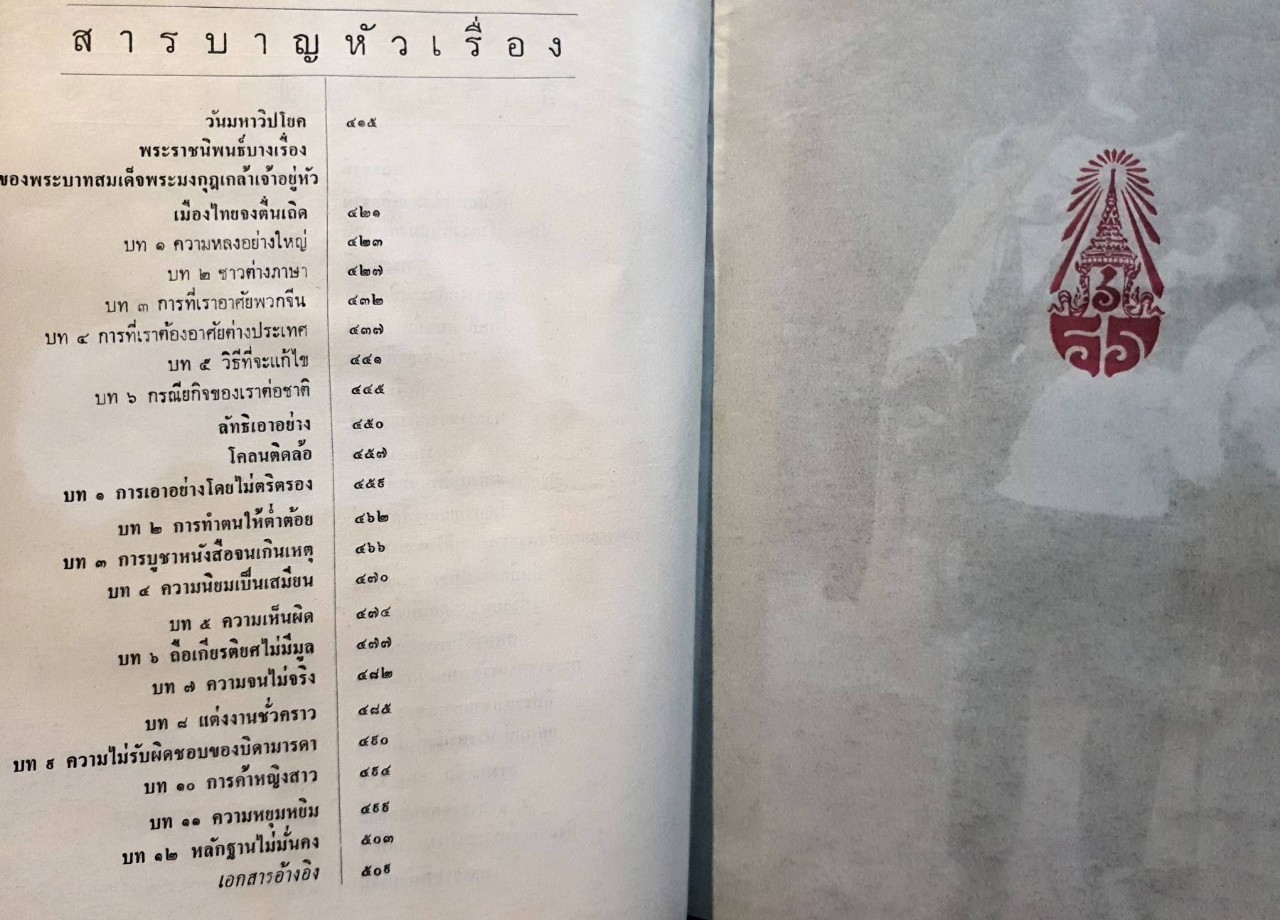 สารบาญหัวเรื่อง
วันมหาวิปโยค ๔๑๕
พระราชนิพนธ์บางเรื่อง
ของพระบาทสมเด็จพระมงกุฎเกล้าเจ้าอยู่หัว
เมืองไทยจงตื่นเถิด ๔๒๑
บท ๑ ความหลงอย่างใหญ่ ๔๒๓
บท ๒ ชาวต่างภาษา ๔๒๗
บท ๓ การที่เราอาศัยพวกจีน ๔๓๒
บท ๔ การที่เราต้องอาศัยต่างประเทศ ๔๓๗
บท ๕ วิธีที่จะแก้ไข ๔๔๑
บท ๖ กรณียกิจของเราต่อชาติ ๔๔๕
ลัทธิเอาอย่าง ๔๕๐
โคลนติดล้อ ๔๕๗
บท ๑ การเอาอย่างโดยไม่ตริตรอง ๔๕๙
บท ๒ การทำตนให้ต่ำต้อย ๔๖๒
บท ๓ การบูชาหนังสือจนเกินเหตุ ๔๖๖
บท ๔ ความนิยมเป็นเสมียน ๔๗๐
บท ๕ ความเห็นผิด ๔๗๔
บท ๖ ถือเกียรติยศไม่มีมูล ๔๗๗
บท ๗ ความจนไม่จริง ๔๘๒
บท ๘ แต่งงานชั่วคราว ๔๘๕
บท ๙ ความไม่รับผิดชอบของบิดามารดา ๔๙๐
บท ๑๐ การค้าหญิงสาว ๔๙๔
บท ๑๑ ความหยุมหยิม ๔๙๙
บท ๑๒ หลักฐานไม่มั่นคง ๕๐๓
เอกสารอ้างอิง ๕๐๙